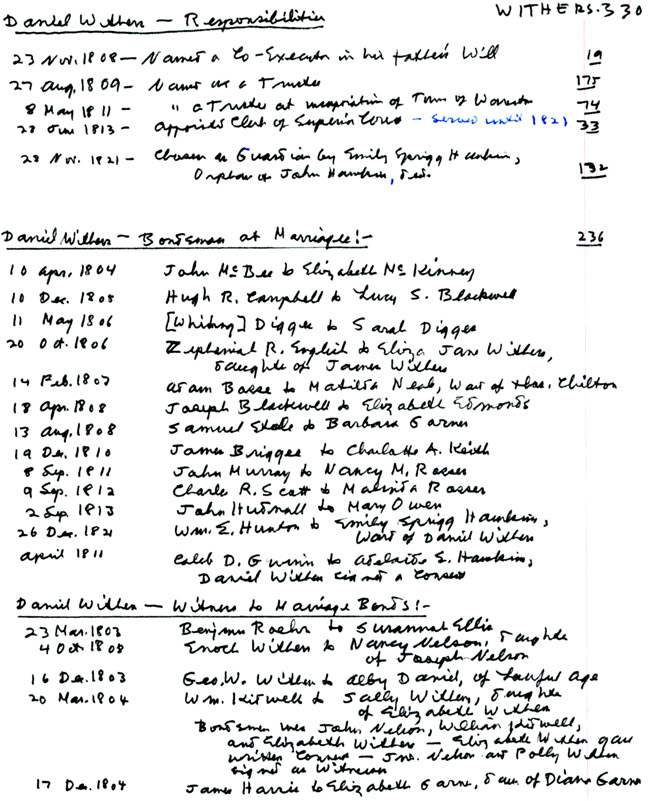 WITHERS.330
Daniel Withers — Responsibilities
23 Nov. 1808 — Named a Co-Executor in his father's Will 19
27 Aug, 1809 — Named as a Trustee 175
8 May 1811 — " a Trustee at incorporation of Town of 74
28 Jun 1813 — Appointed Clerk of Superior Court — Served until 1821 33
28 Nov. 1821 — Chosen as Guardian by Emily Sprigg Hawkins,
Orphan of John Hawkins, Dec. 132
Daniel Withers — Bondsman at Marriages:- 236
10 Apr. 1804 John McBee to Elizabeth McKinney
10 Dec. 1805 Hugh R. Campbell to Lucy S. Blackwell
11 May 1806 [Whiting] Digges to Sarah Digges
20 Oct. 1806 Zephenial R. English to Eliza Jane Withers,
daughter of James Withers
14 Feb. 1807 Adam Basse to Matilda Neale, Ward of Thos. Chilton
18 Apr. 1808 Joseph Blackwell to Elizabeth Edmonds
13 Aug, 1808 Samuel to Barbara Garner
19 Dec. 1810 James Briggs to Charlotte A. Keith
8 Sep. 1811 John Murray to Nancy M. Rosser
9 Sep. 1812 Charles R. Scott to Malinda Rosser
2 Sep 1813 John Hudnall to Mary Owen
26 Dec. 1821 Wm. E. Hunton to Emily Sprigg Hawkins,
Ward of Daniel Withers
April 1811 Caleb D. Gwinn to Adelaide E. Hawkins,
Daniel Withers signed a Consent
Daniel Withers — Witness to Marriage Bonds:-
23 Mar. 1803 Benjmn Roehr to Susannah Ellis
4 Oct 1808 Enoch Withers to Nancy Nelson, daughter
of Joseph Nelson
16 Dec. 1803 Geo. W. Withers to Alby Daniel, of Lawful Age
20 Mar. 1804 Wm. Kidwell to Sally Withers, daughter
of Elizabeth Withers
Bondsmen were John Nelson, William Kidwell,
and Elizabeth Withers — Elizabeth Withers gave
written Consent — Jno. Nelson and Polly Withers
signed as Witnesses
17 Dec. 1804 James Harris to Elizabeth Garner, dau. of Diana Garner